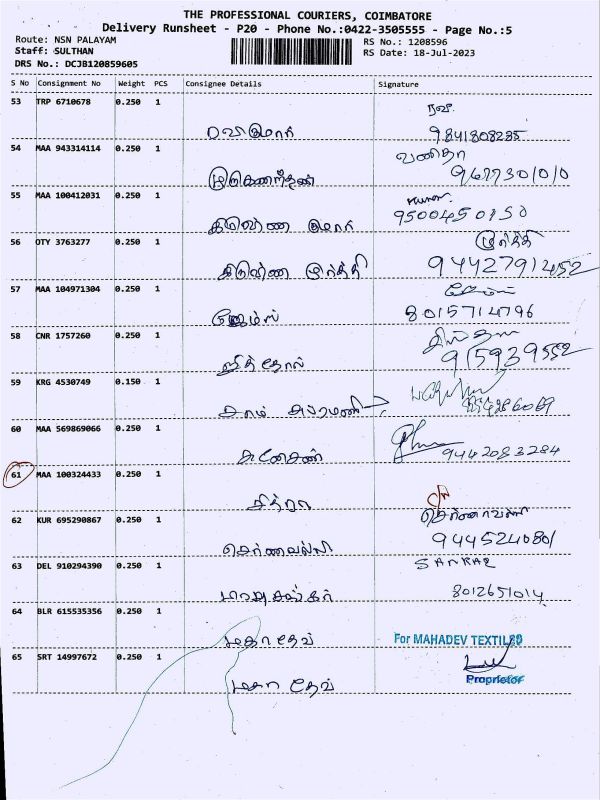 THE PROFESSIONAL COURIERS, COIMBATORE
Delivery Runsheet - P20 - Phone No.:0422-3505555 - Page No.:5
Route: NSN PALAYAM
RS No.: 1208596
Staff: SULTHAN
RS Date: 18-Jul-2023
DRS No.: DCJB120859605
S No Consignment No Weight PCS Consignee Details Signature
53 TRP 6710678 0.250 1
ரவி
ரவிகுமார் 9841808285
54 MAA 943314114 0.250 1
வனிதா
முருகானந்தன்
55 MAA 100412031 0.250 1
கிருஷ்ண குமார் 9500450150
56 OTY 3763277 0.250 1
மூர்த்தி
கிருஷ்ண மூர்த்தி 9442791452
57 MAA 104971304 0.250 1
ஜேம்ஸ் 8015714796
58 CNR 1757260 0.250 1
915939552
59 KRG 4530749 0.150 1
60 MAA 569869066 0.250 1
கணேசன் 9442083284
61 MAA 100324433 0.250 1
சித்ரா
62 KUR 695290867 0.250 1
944524080/
63 DEL 910294390 0.250 1
SANKAR
8012651014
64 BLR 615535356 0.250 1
மகா தேவ் For MAHADEV TEXTILES
65 SRT 14997672 0.250 1
மகா தேவ் Proprietor